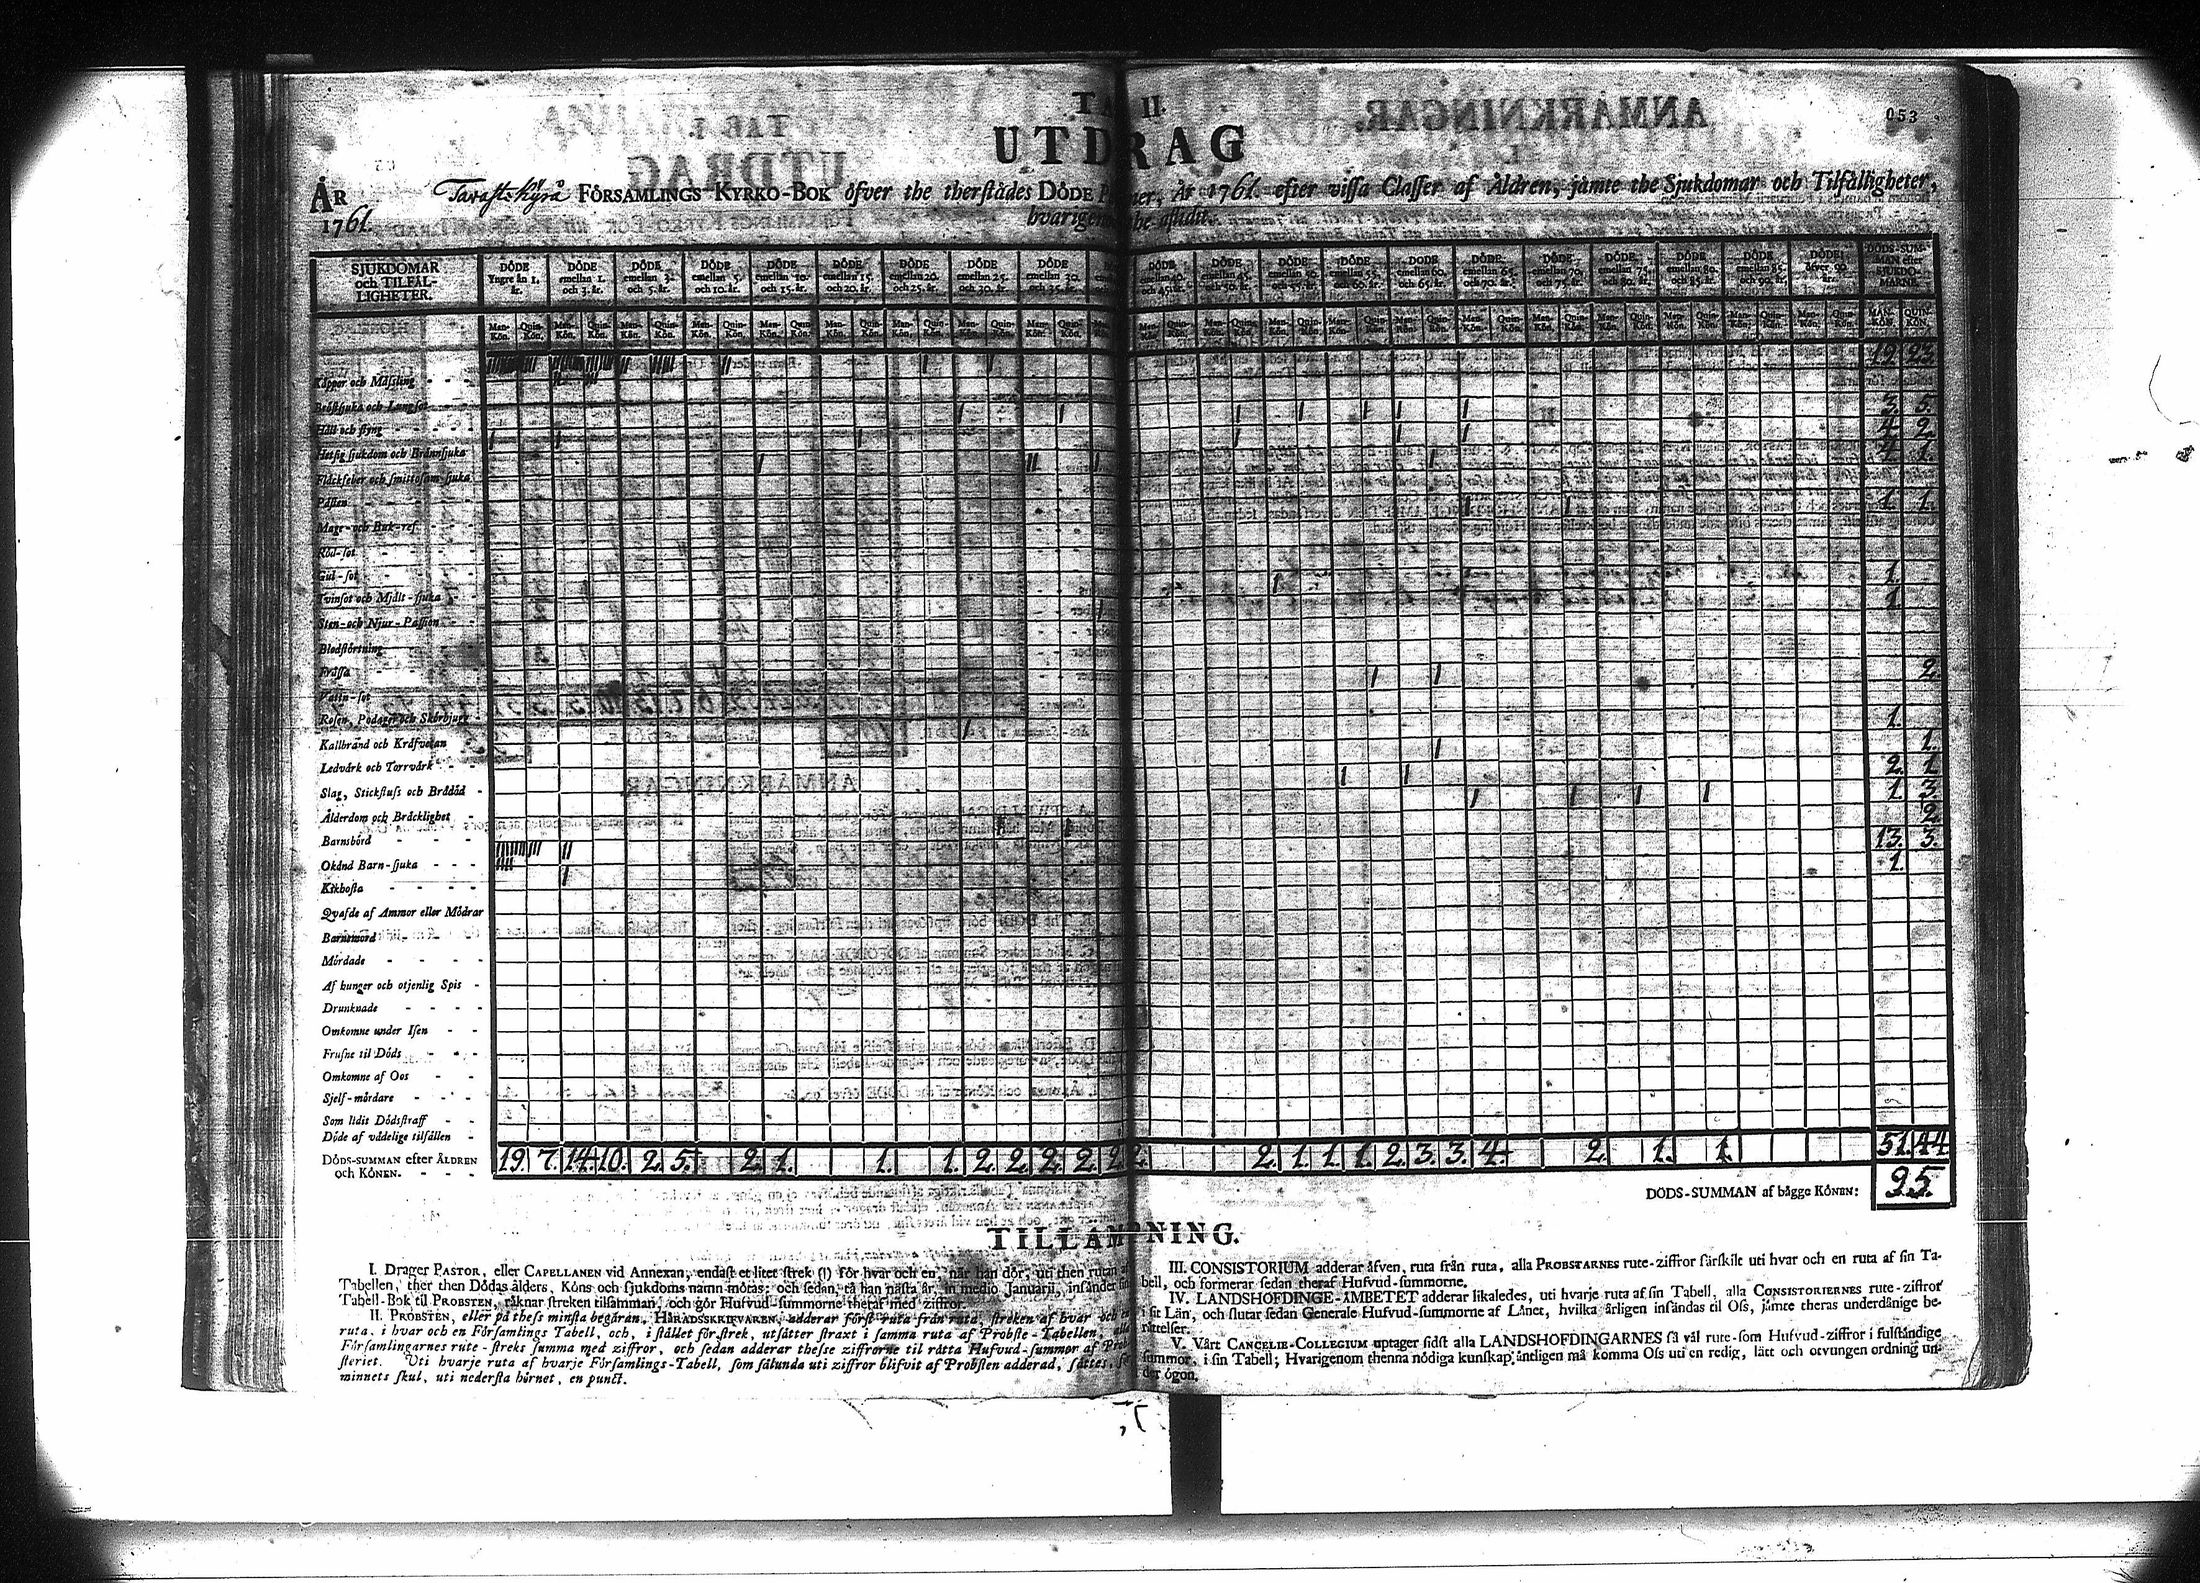 053
TA II.
UTDRAG
ÅR
1761.
Tavastkyrå FÖRSAMLINGS KYRKO-BOK öfver the therstädes DÖDE ner, År 1761. efter vissa Classer af Åldren, jämte the Sjukdomar och Tilfälligheter,
hvarigen the aflidit.
SJUKDOMAR och TILFÄL-LIGHETER.
DÖDE Yngre än 1. år.
DÖDE emellan 1. och 3. år.
DÖDE emellan 3. och 5. år.
DÖDE emellan 5. och 10. år.
DÖDE emellan 10. och 15. år.
DÖDE emellan 15. och 20. år.
DÖDE emellan 20. och 25. år.
DÖDE emellan 25. och 30. år.
DÖDE emellan 30. och 35. år.
DÖDE emellan 40. och 45. år.
DÖDE emellan 45. och 50. år.
DÖDE emellan 50. och 55. år.
DÖDE emellan 55. och 60. år.
DÖDE emellan 60. och 65. år.
DÖDE emellan 65. och 70. år.
DÖDE emellan 70. och 75. år.
DÖDE emellan 75. och 80. år.
DÖDE emellan 80. och 85. år.
DÖDE emellan 85. och 90. år.
DÖDE öfver 90. år.
DÖDS-SUM-MAN efter SJUKDO-MARNE.
Man-Kön. Quin-Kön. Man-Kön. Quin-Kön. Man-Kön. Quin-Kön. Man-Kön. Quin-Kön. Man-Kön. Quin-Kön. Man-Kön. Quin-Kön. Man-Kön. Quin-Kön. Man-Kön. Quin-Kön. Man-Kön. Quin-Kön.
MAN-KÖN. QUIN-KÖN.
Koppor och Mässling - - - 19. 23.
Bröstsjuka och Lungsot 3. 5.
Håll och styng - - - 4. 2.
Hetsig sjukdom och Brännsjuka 4. 1.
Fläckfeber och smittosam sjuka
Pästen - - - 1. 1.
Mage- och Buk-ref - - -
Röd-sot - - -
Gul-sot - - - 1.
Tvinsot och Mjält-sjuka - 1.
Sten- och Njur-Passion - -
Blodstörtning - - -
Frässa - - - 2.
Vattu-sot
Rosen, Podager och Skörbjugg - 1.
Kallbrand och Kräfvetan 1.
Ledvärk och Torrvärk - - 2. 1.
Slag, Stickfluss och Brådöd - 1. 3.
Ålderdom och Bräcklighet - 2.
Barnsbörd - - - - 13. 3.
Okänd Barn-sjuka - - - 1.
Kikhosta - - - -
Qvafde af Ammor eller Mödrar
Barnamord - - -
Mördade - - - -
Af hunger och otjenlig Spis -
Drunknade - - - -
Omkomne under Isen - -
Frusne til Döds - - -
Omkomne af Oos - -
Sjelf-mördare - - -
Som lidit Dödsstraff - -
Döde af vådelige tilfällen -
DÖDS-SUMMAN efter ÅLDREN och KÖNEN. - - - 19. 7. 14. 10. 2. 5. 2. 1. 1. 1. 2. 2. 2. 2. 2. 2. 2. 1. 1. 1. 2. 3. 3. 4. 2. 1. 1. 51. 44
DÖDS-SUMMAN af bägge KÖNEN: 95.
TILLÄMPNING.
I. Drager PASTOR, eller CAPELLANEN vid Annexan, endast et litet strek (|) för hvar och en, när han dör, uti then rutan
Tabellen, ther then Dödas ålders, Köns och sjukdoms namn mötas: och sedan, tå han nästa år, in medio Januarii, insänder
Tabell-Bok til PROBSTEN, räknar streken tilsamman, och gör Hufvud-summorne theraf med ziffror.
II. PROBSTEN, eller på thess minsta begäran, HÄRADSSKRIFVAREN, adderar först ruta från ruta, streken af hvar och en
ruta, i hvar och en Församlings Tabell, och, i stället för strek, utsätter straxt i samma ruta af Probste-Tabellen
Församlingarnes rute-streks summa med ziffror, och sedan adderar thesse ziffrorne til rätta Hufvud-summor af Prob
steriet. Uti hvarje ruta af hvarje Församlings-Tabell, som sålunda uti ziffror blifvit af Probsten adderad, sättes,
minnets skul, uti nedersta hörnet, en punct.
III. CONSISTORIUM adderar äfven, ruta från ruta, alla PROBSTARNES rute-ziffror särskilt uti hvar och en ruta af sin Ta-
bell, och formerar sedan theraf Hufvud-summorne.
IV. LANDSHÖFDINGE-ÄMBETET adderar likaledes, uti hvarje ruta af sin Tabell, alla CONSISTORIERNES rute-ziffror
i sit Län, och slutar sedan Generale Hufvud-summorne af Länet, hvilka årligen insändas til Oss, jämte theras underdånige be-
rättelser.
V. Vårt CANCELIE-COLLEGIUM uptager sidst alla LANDSHÖFDINGARNES så väl rute-som Hufvud-ziffror i fulständige
summor, i sin Tabell; Hvarigenom thenna nödiga kunskap äntligen må komma Oss uti en redig, lätt och otvungen ordning un-
der ögon.